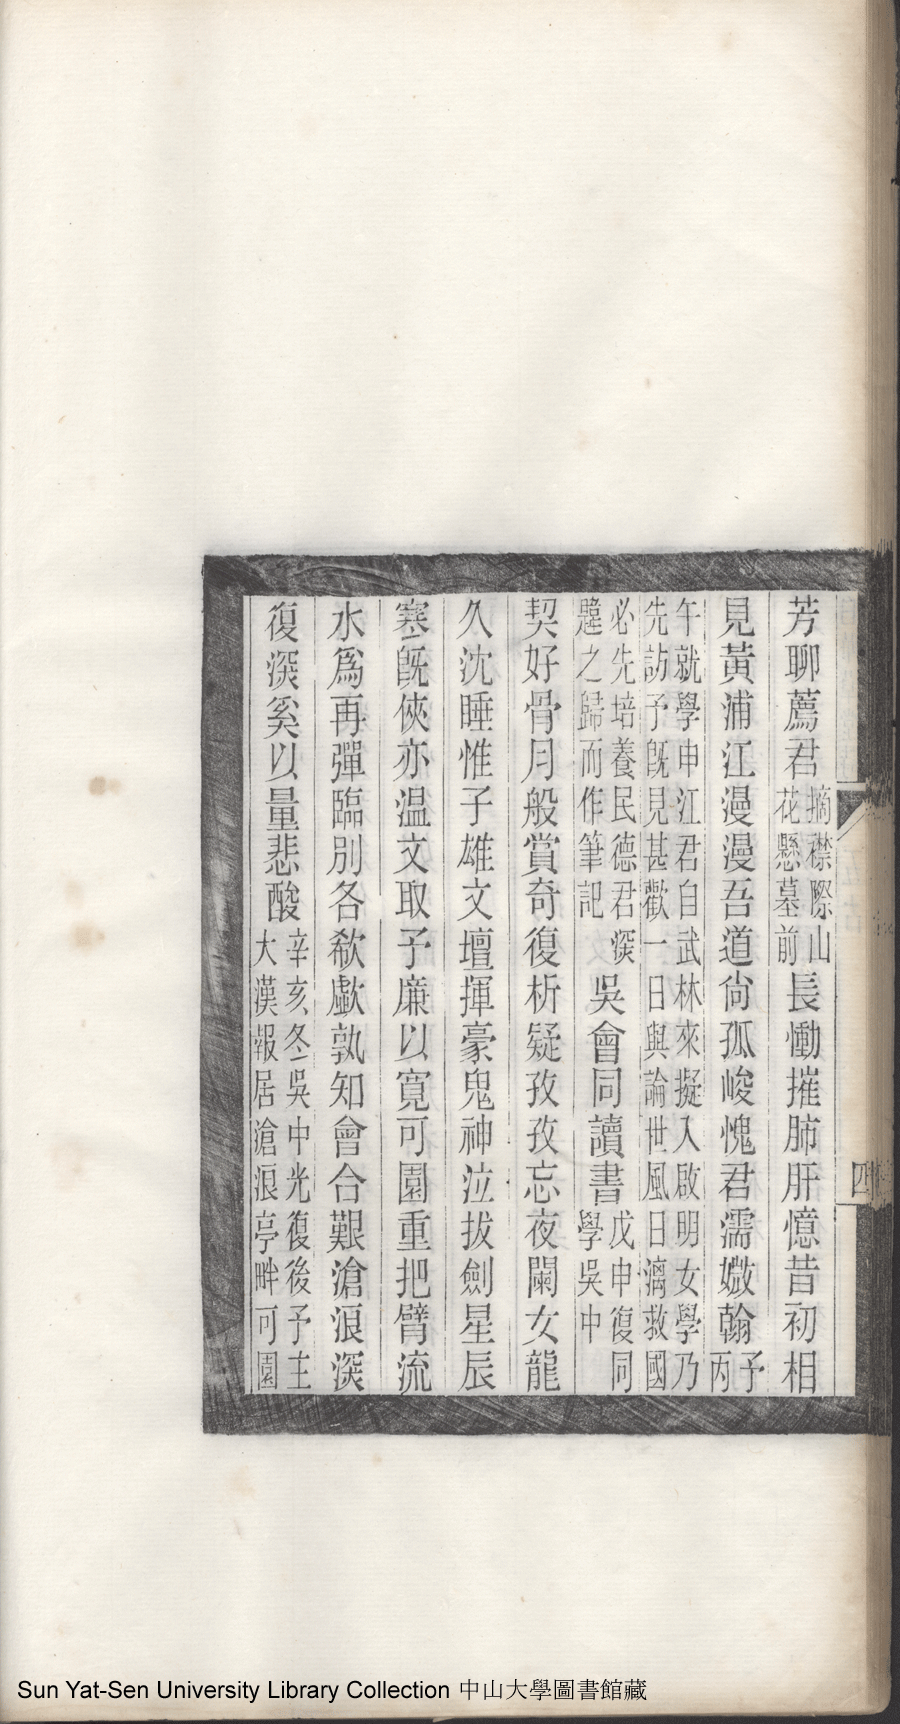 芳聊薦君摘襟際山花懸墓前長慟摧肺肝憶昔初相
見黃浦江漫漫吾道尙孤峻愧君濡媺翰予丙
午就學申江君自武林來擬入啟明女學乃先訪予旣見甚歡一日與論世風日漓救國
必先培養民德君深韙之歸而作筆記吳會同讀書戊申復同學吳中
契好骨月般賞奇復析疑孜孜忘夜闌女龍
久沈睡惟子雄文壇揮豪鬼神泣拔劍星辰
寒旣俠亦溫文取予廉以寬可園重把臂流
水爲再彈臨別各欷歔孰知會合艱滄浪深
復深奚以量悲酸辛亥冬吳中光復後予主大漢報居滄浪亭畔可園
四
Sun Yat-Sen University Library Collection 中山大學圖書館藏